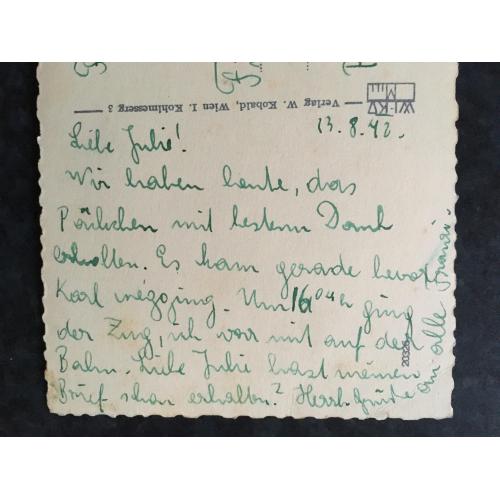 Verlag W. Kobald, Wien I. Kohlmesserg 3
WI-KO
13.8.42.
Liebe Julie!
Wir haben heute, das
Päckchen mit bestem Dank
erhalten. Es kam gerade bevor
Karl wegging. Um 16 04h ging
der Zug, ich war mit auf der
Bahn. Liebe Julie hast meinen
Brief schon erhalten? Herzl. Grüße
an alle Franzi.